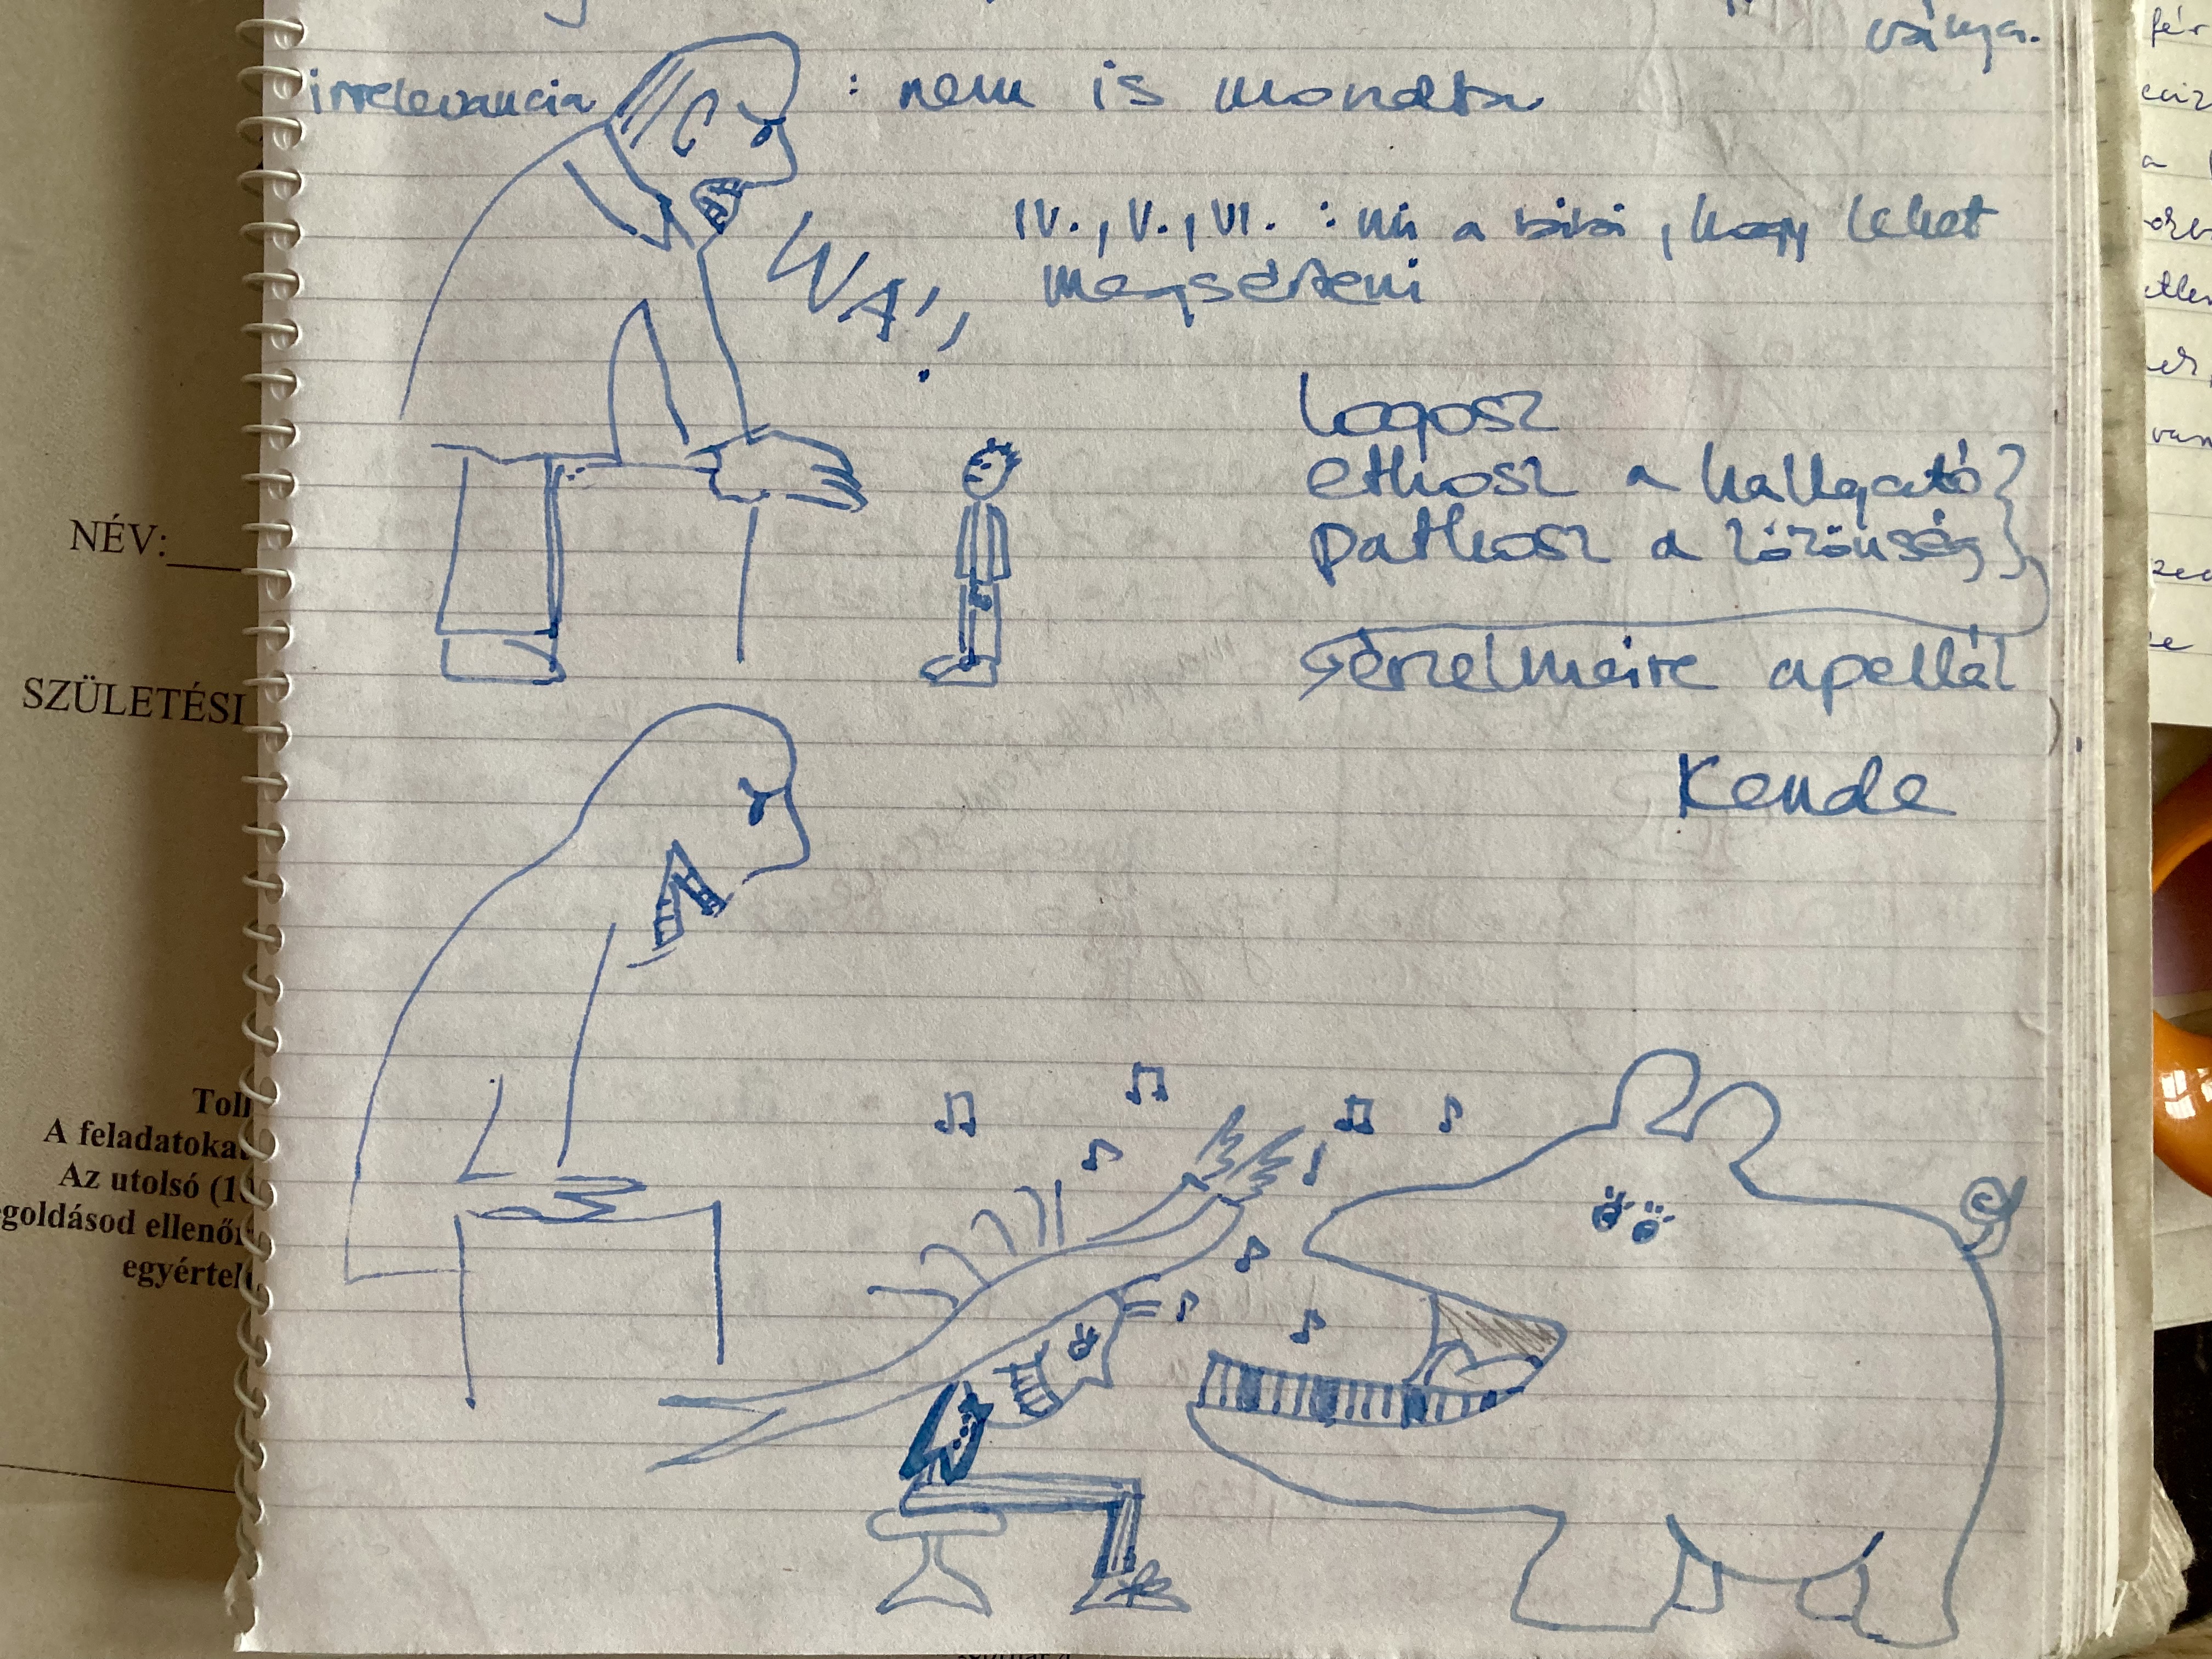 ványa.
irrelevancia : nem is mondta
IV., V., VI. : mi a bibi, hogy lehet
megsérteni
WA!
logosz
ethosz a hallgató
pathosz a közönség
érzelmeire apellál
Kende
NÉV:
SZÜLETÉSI
Toll
A feladatoka
Az utolsó (1
egoldásod ellenőr
egyértel